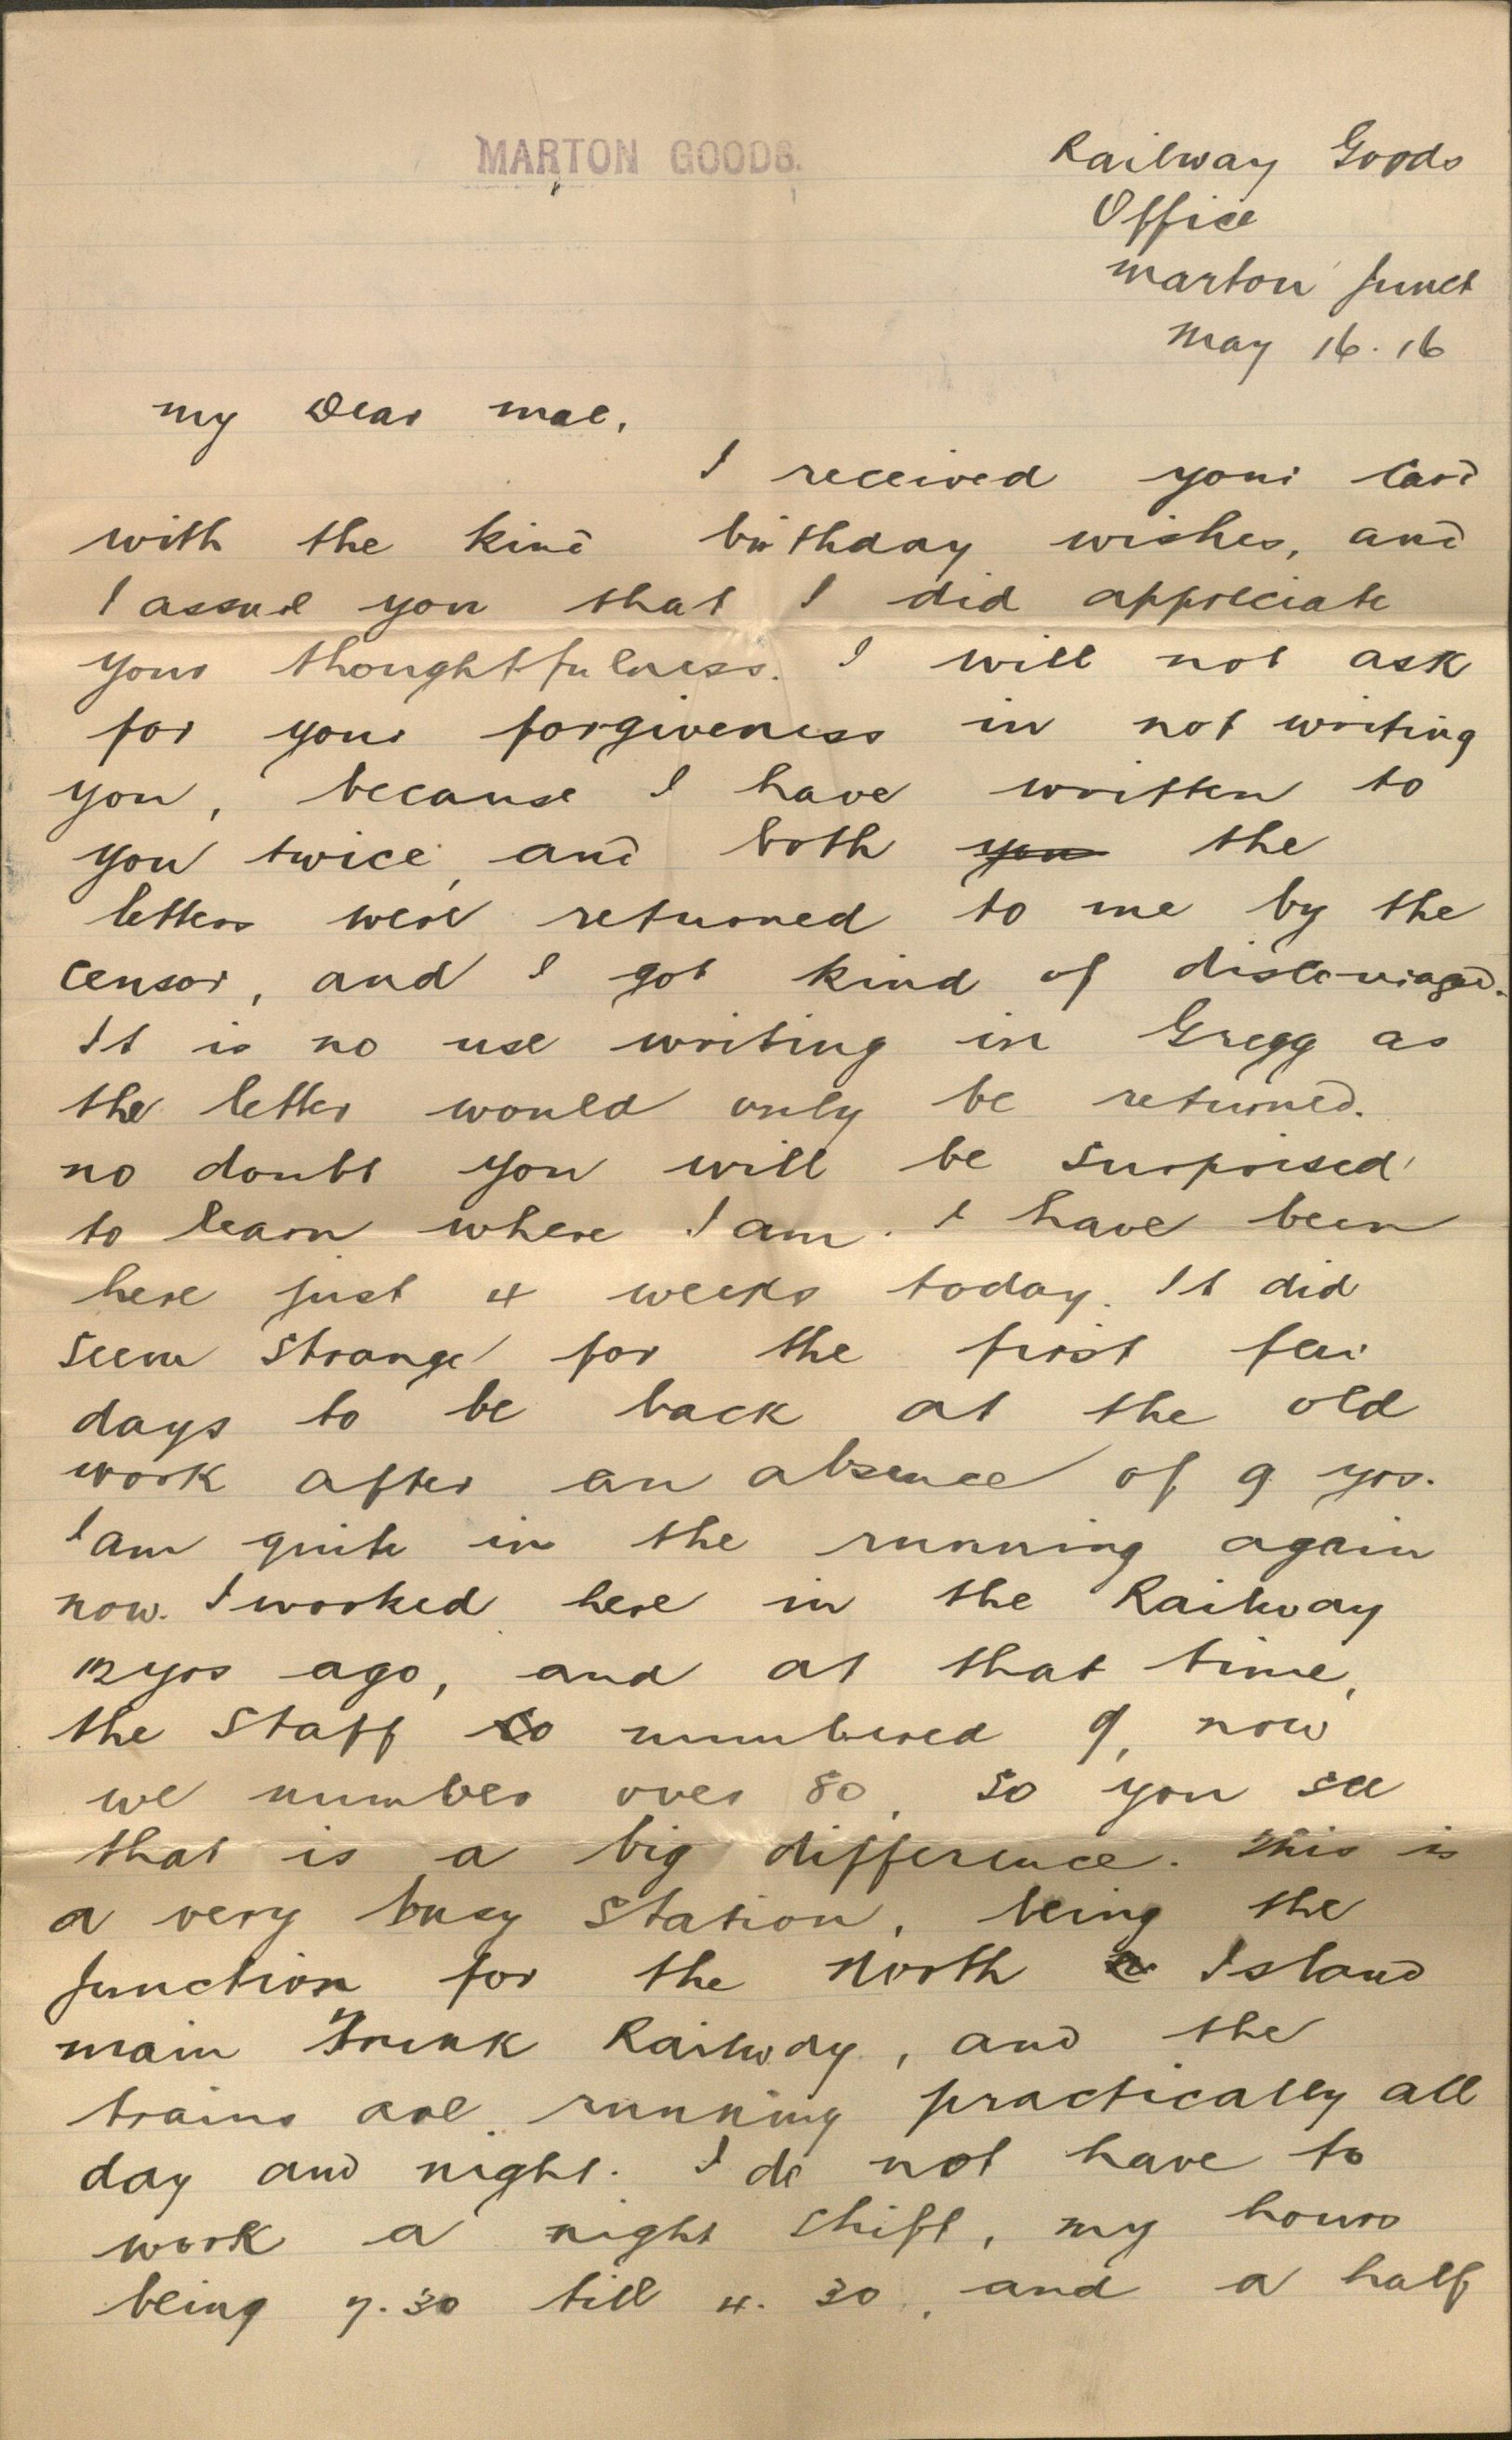 MARTON GOODS.
Railway Goods
Office
Marton Junct
May 16. 16
My Dear Mae,
I received your card
with the kind birthday wishes, and
I assure you that I did appreciate
your thoughtfulness. I will not ask
for your forgiveness in not writing
you, because I have written to
you twice, and both you the
letters were returned to me by the
censor, and I got kind of discouraged.
It is no use writing in Gregg as
the letter would only be returned.
No doubt you will be surprised
to learn where I am. I have been
here just 4 weeks today. It did
seem strange for the first few
days to be back at the old
work after an absence of 9 yrs.
I am quite in the running again
now. I worked here in the Railway
12 yrs ago, and at that time,
the staff numbered 9, now
we number over 80, so you see
that is a big difference. This is
a very busy station, being the
junction for the North Island
main Trunk Railway, and the
trains are running practically all
day and night. I do not have to
work a night shift, my hours
being 7.30 till 4.30, and a half